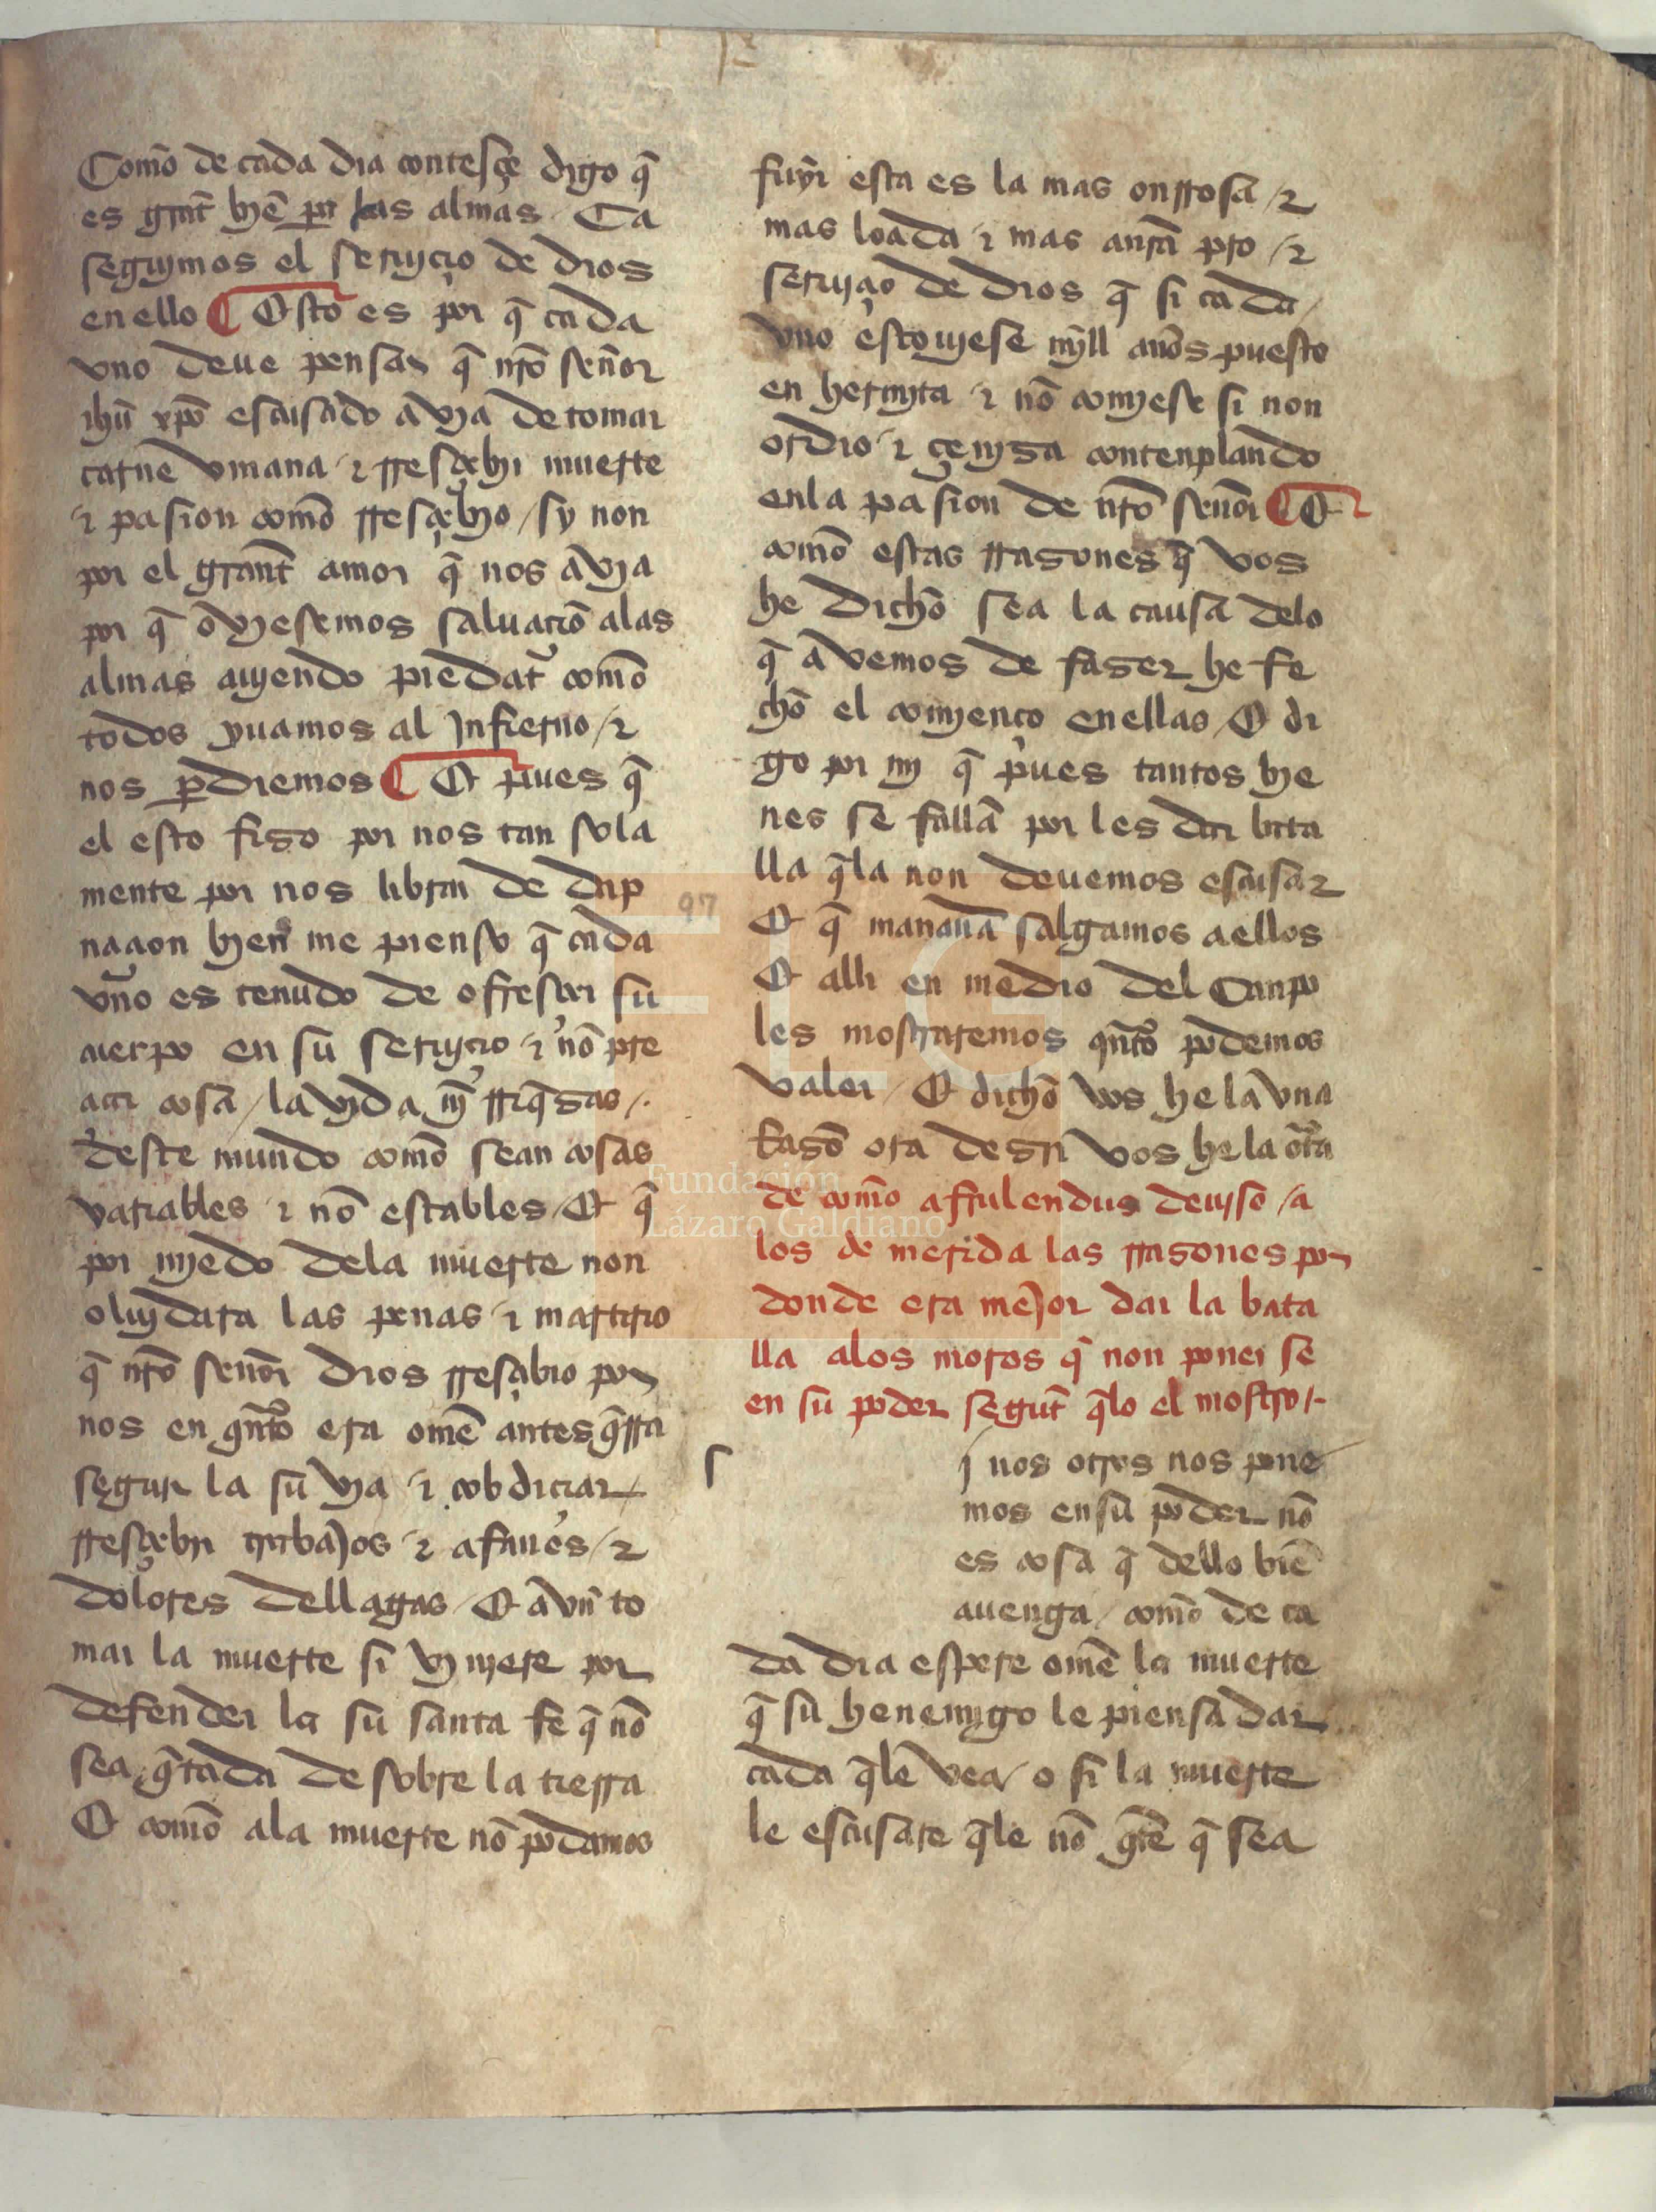 Comō de cada dia contesçe digo q̄
es grāt byē pa las almas Ca
seguymos el seruyçio de dios
en ello ¶ Esto es por q̄ cada
vno deue pensar q̄ nr̄o señor
ihū xp̄o escusado avya de tomar
carne vmana ⁊ rresçebyr muerte
⁊ pasion comō rresçebyo / sy non
por el grant̄ amor q̄ nos avya
por q̄ ovyesemos saluaciō alas
almas auyendo piedat̄ comō
todos yuamos al jnfierno / ⁊
nos ꝑdiemos ¶ Et pues q̄
el esto fiso por nos tan sola
mente por nos librar de dap
naçion byen me pienso q̄ cada
vno es tenudo de ofresçer su
cuerpo en su seruyçio ⁊ nō pre
ciar cosa / la vyda nȳ rriq̄sas /.
deste mundo comō sean cosas
variables ⁊ nō estables / Et q̄
por myedo dela muerte non
oluydara las penas ⁊ martirio
q̄ nr̄o señor dios rresçibio por
nos en qn̄to era omē antes q̄rra
seguir la su vya ⁊ cobdiciar
rresçebyr trabajos ⁊ afanes / ⁊
dolores dellagas / Et avn to
mar la muerte si vynyere por
defender la su santa fe q̄ nō
sea q̄tada de sobre la tierra
E comō ala muerte nō podamos
fuyr esta es la mas onrrosa / ⁊
mas loada ⁊ mas anr̄a pro / ⁊
seruyçio de dios q̄ si cada /
vno estouyese myll años puesto
en hermyta ⁊ nō comyese si non
ordio ⁊ çenysa contenplando
enla pasion de nr̄o señor ¶ E
comō estas rrasones q̄ vos
he dichō sea la causa delo
q̄ avemos de faser he fe
chō el comyenço enellas / E di
go por my q̄ pues tantos bye
nes se fallā por les dar bata
lla q̄la non deuemos escusar
Et q̄ mañana salgamos aellos
Et alli en medio del Canpo
les mostraremos qn̄to podemos
valer / Et dichō vos he la vna
rasō ora desir vos he la otr̄a
de comō afrulendus deuyso / a
los de merida las rrasones por
donde era mejor dar la bata
lla alos moros q̄ non poner se
en su poder segunt̄ q̄lo el mostro /-
s
j nos otros nos pone
mos en su poder nō
es cosa q̄ dello biē
auenga / comō de ca
da dia espere omē la muerte
q̄ su henemygo le piensa dar
cada q̄le vea / o si la muerte
le escusare q̄le nō q̄te q̄ sea
97
FLG
Fundación
Lázaro Galdiano